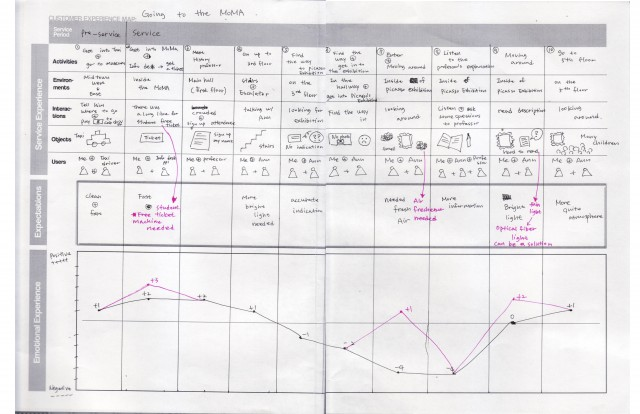 CUSTOMER EXPERIENCE MAP: Going to the MoMA
Service Period
Pre-service
Service
Service Experience
Activities
① Get into Taxi
go to museum
② Get into MoMA
get a ticket
Meet History professor
④ Go up to 3rd floor
⑤ Find the way to picasso Exhibition
⑥ Find the way get in to the exhibition
⑦ Enter
moving around
⑧ Listen to the professor's explanation
⑨ Moving around
⑩ Go to 5th floor
Environments
Midtown West
East
Inside the MoMA
Main hall (first floor)
Stairs
Escalator
on the 3rd floor
In the hallway
Inside of Picasso Exhibition
Inside of Picasso Exhibition
Inside of Picasso Exhibition
on the floor
Interactions
Tell him where to go
There are a long line for student free ticket
crowded
sign up attendance
talking w/ Ann
looking for exhibition
Find the way in
looking around
Listen
to professor
read description
looking around.
Objects
Taxi
Ticket
Sign up my name
Stairs
No indication
smell
hard to read
Many children
Users
Me Taxi driver
Me Info desk
Me professor
Me Ann
Me Ann
Me Ann
Me Ann
Me Ann
Me Ann
Me Ann
Expectations
Clean
fast
Fast
student
Free ticket
machine
needed
More bright light needed
accurate indication
needed fresh Air
Air Freshener needed
More information
Bright light
light
Optical Fiber light can be a solution
More quite atmosphere
Emotional Experience
Positive
++++
+1
+3
+2
+2
+1
-1
-2
+1
+2
0
+1
Negative